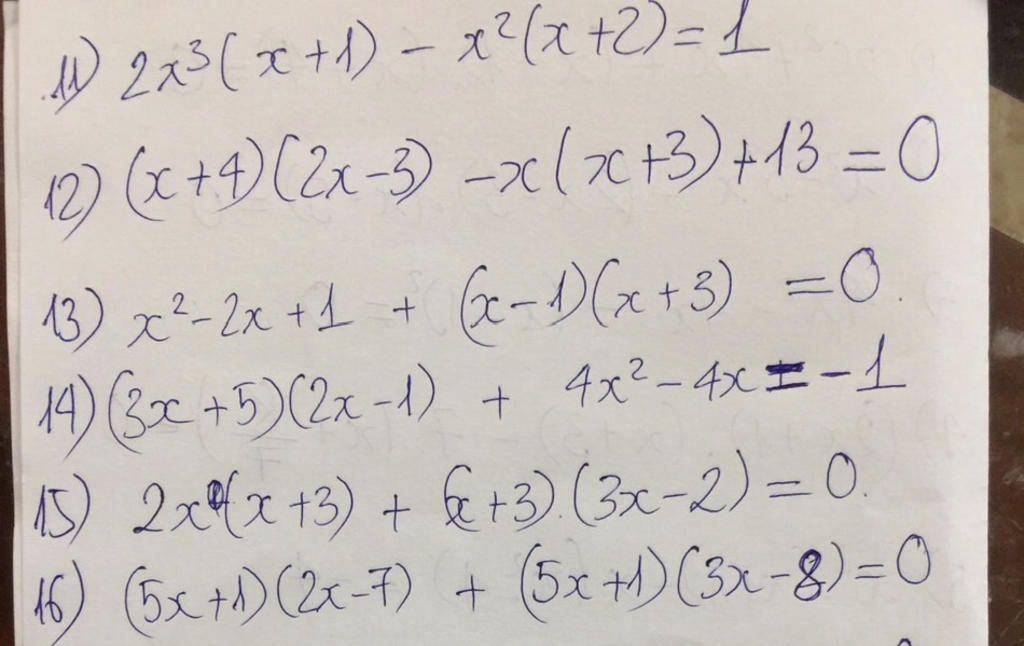 11) 2x³(x+1) - x²(x+2) = 1
12) (x+4)(2x-3) -x(x+3)+13 = 0
13) x²-2x+1 + (x-1)(x+3) = 0.
14) (3x+5)(2x-1) + 4x²-4x = -1
15) 2x(x+3) + (x+3).(3x-2) = 0.
16) (5x+1)(2x-7) + (5x+1)(3x-8) = 0